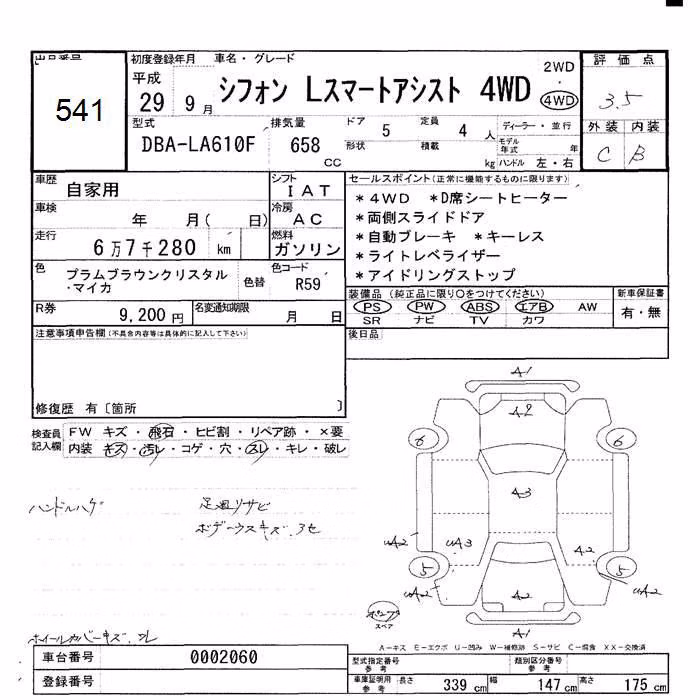 出品番号
541
初度登録年月 車名・グレード
平成
29 9 月
シフォン Lスマートアシスト 4WD
2WD
・
4WD
評価点
3.5
外装 内装
C B
型式
DBA-LA610F
排気量
658
cc
ドア 5
形状
定員 4 人
積載 kg
ディーラー・並行
モデル年式 年
ハンドル 左・右
車歴 自家用
シフト
IAT
車検 年 月( 日)
冷房
AC
走行 6万7千280 km
燃料
ガソリン
色 プラムブラウンクリスタル
・マイカ
色替
色コード
R59
R券 9,200 円
名変通知期限 月 日
セールスポイント(正常に機能するものに限ります)
*4WD *D席シートヒーター
*両側スライドドア
*自動ブレーキ *キーレス
*ライトレベライザー
*アイドリングストップ
装備品(純正品に限り○をつけてください)
PS PW ABS エアB AW
SR ナビ TV カワ
新車保証書
有・無
後日品
注意事項申告欄(不具合内容等は具体的に記入して下さい)
修復歴 有〔箇所 〕
検査員
記入欄
FW キズ・飛石・ヒビ割・リペア跡・×要
内装 キズ・汚レ・コゲ・穴・スレ・キレ・破レ
ハンドルハゲ
足廻リサビ
ボデーウスキズ.3セ
ホイールカバーキズ.ワレ
A1
A2
6 6
A3
UA2 UA3
A2
5 5
UA2 UA2
A2
スペア
A1
A-キス E-エクボ U-凹み W-補修跡 S-サビ C-腐食 XX-交換済
車台番号 0002060
登録番号
型式指定番号
参考
類別区分番号
参考
車庫証明用
参考
長さ 339 cm 幅 147 cm 高さ 175 cm